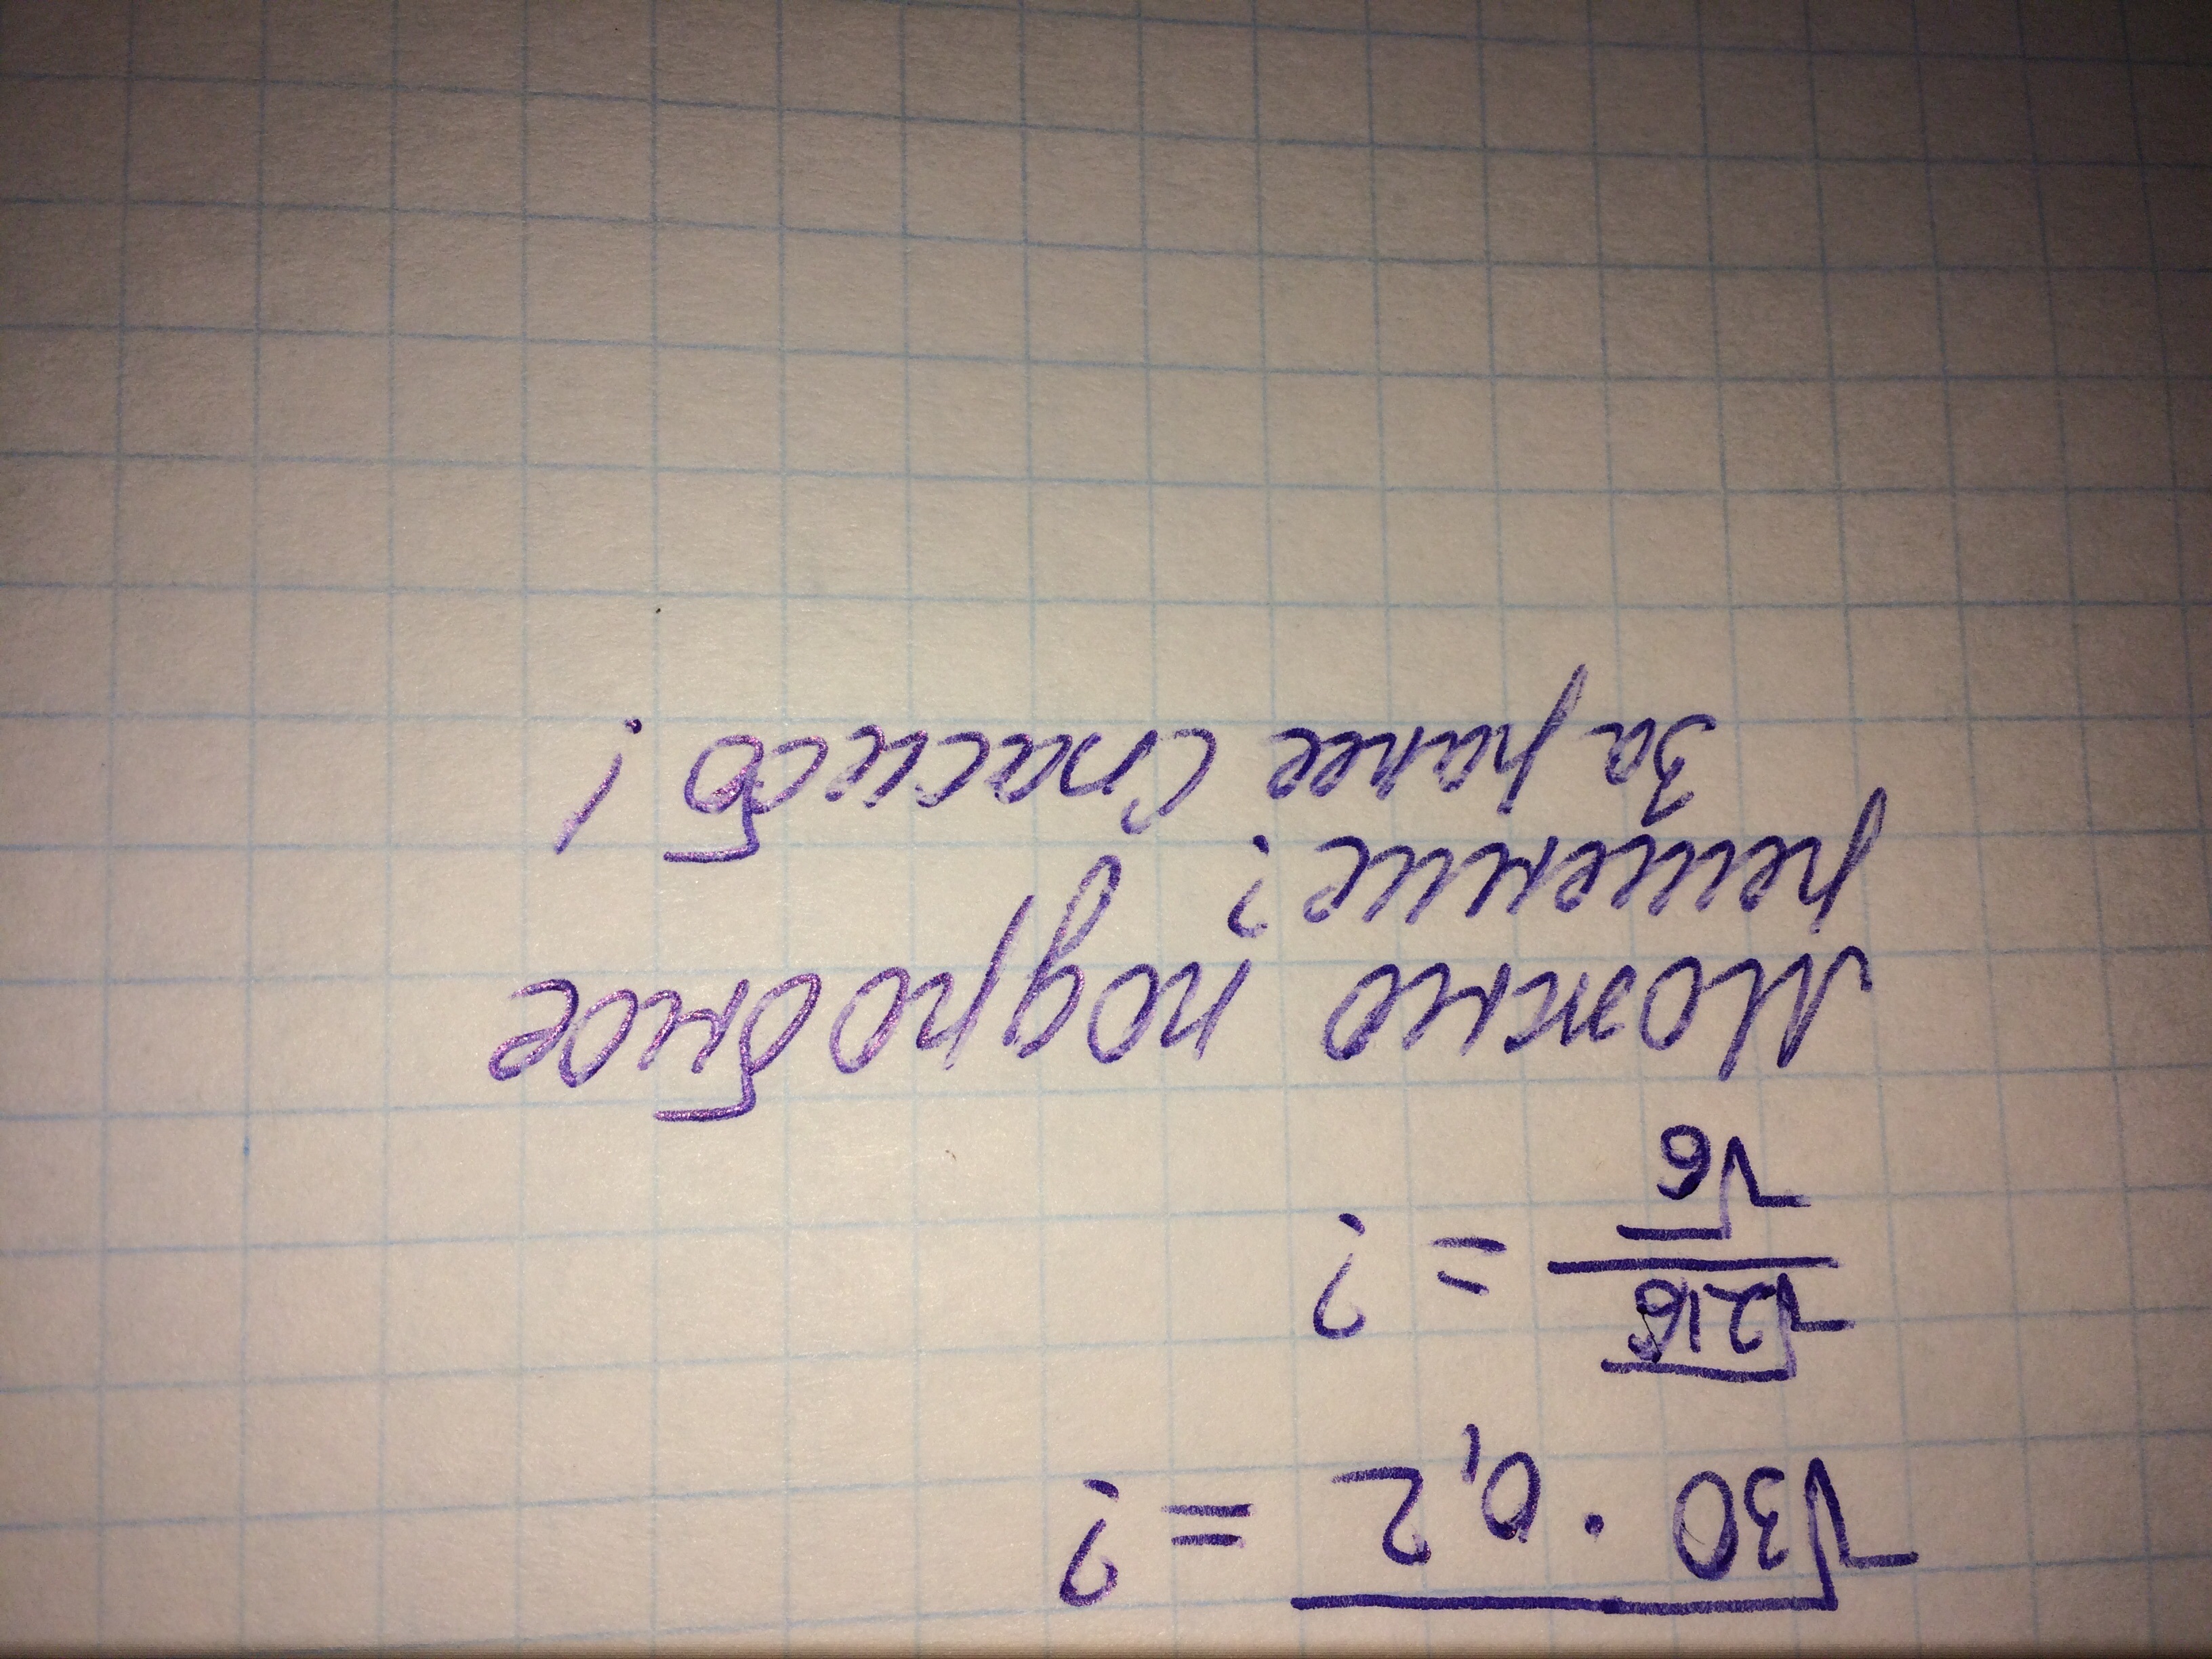 √30 · 0,2 = ?
√216 / √6 = ?
Можно подробное
решение?
За ранее спасиб!